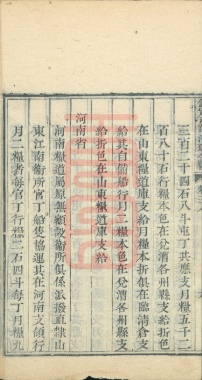 三百二十四石八斗屯丁共應支月糧五千二
百八十石行糧本色在兌漕各州縣支給折色
在山東糧道庫支給月糧本折俱在臨清倉支
給其自備船行月二糧本色在兌漕各州縣支
給折色在山東糧道庫支給
河南省
河南糧道屬原無額設衛所俱係派撥直隸山
東江南衛所官丁船隻協運其在河南支領行
月二糧者每官丁行糧二石四斗每丁月糧九